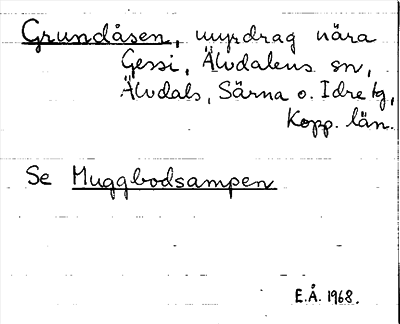 Grundåsen, myrdrag nära
Gessi, Älvdalens sn,
Älvdals, Särna o. Idre tg,
Kopp. län.
Se Muggbodsampen
E.Å. 1968.